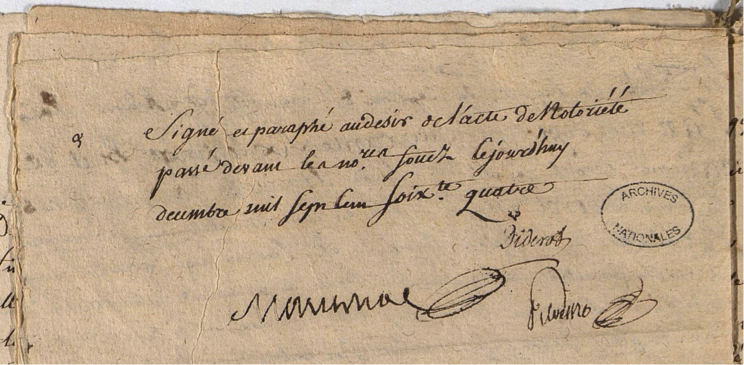 Signé et paraphé au desir de l'acte de Notorieté
passé devant les no.res souz. cejourd'huy
decembre mil sept cent soix.te quatre
Diderot
ARCHIVES
NATIONALES